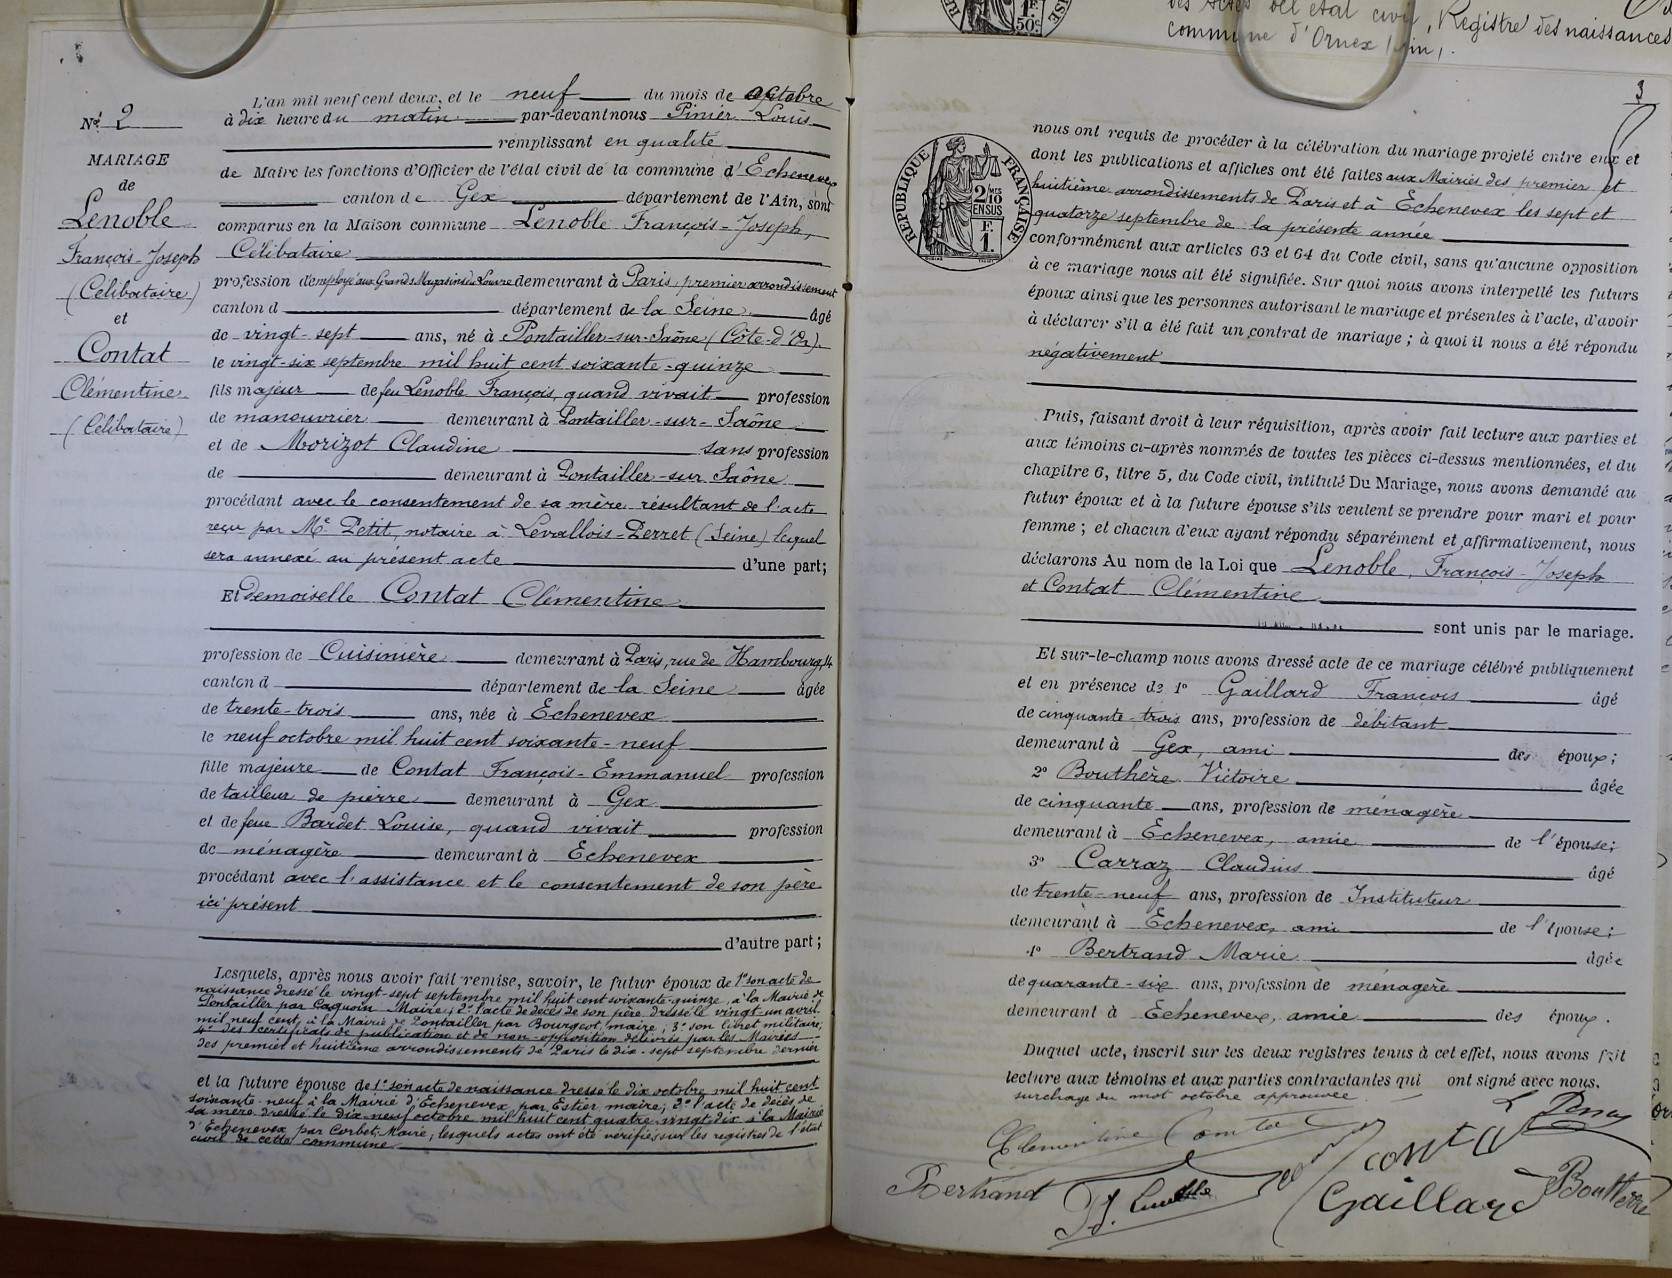 N° 2
MARIAGE
de
Lenoble
François-Joseph
(Célibataire)
et
Contat
Clémentine
(Célibataire)
L'an mil neuf cent deux, et le neuf du mois de octobre
à dix heure du matin par-devant nous Pinier Louis
remplissant en qualité
de Maire les fonctions d'Officier de l'état civil de la commune d'Echenevex
canton de Gex département de l'Ain, sont
comparus en la Maison commune Lenoble François-Joseph,
Célibataire
profession d'employé aux Grands Magasins du Louvre demeurant à Paris, premier arrondissement
canton d département de la Seine âgé
de vingt-sept ans, né à Pontailler-sur-Saône (Côte-d'Or)
le vingt-six septembre mil huit cent soixante-quinze
fils majeur de feu Lenoble François, quand vivait profession
de manouvrier demeurant à Pontailler-sur-Saône
et de Morizot Claudine sans profession
de demeurant à Pontailler-sur-Saône
procédant avec le consentement de sa mère résultant de l'acte
reçu par Me Petit, notaire à Levallois-Perret (Seine) lequel
sera annexé au présent acte d'une part;
Et Demoiselle Contat Clémentine
profession de Cuisinière demeurant à Paris, rue de Hambourg, 14
canton d département de la Seine âgée
de trente-trois ans, née à Echenevex
le neuf octobre mil huit cent soixante-neuf
fille majeure de Contat François-Emmanuel profession
de tailleur de pierre demeurant à Gex
et de feue Bardet Louise, quand vivait profession
de ménagère demeurant à Echenevex
procédant avec l'assistance et le consentement de son père
ici présent
d'autre part;
Lesquels, après nous avoir fait remise, savoir, le futur époux de 1° son acte de
naissance dressé le vingt-sept septembre mil huit cent soixante-quinze, à la Mairie de
Pontailler par Caquoin Maire; 2° l'acte de décès de son père dressé le vingt-un avril
mil neuf cent à la Mairie de Pontailler par Bourgeot, maire; 3° son libret militaire;
4° des certificats de publication et de non-opposition délivrés par les Mairies
des premier et huitième arrondissements de Paris le dix-sept septembre dernier
et la future épouse de 1° son acte de naissance dressé le dix octobre mil huit cent
soixante-neuf à la Mairie d'Echenevex par Estier maire; 2° l'acte de décès de
sa mère dressé le dix-neuf octobre mil huit cent quatre-vingt-dix à la Mairie
d'Echenevex par Corbet, Maire; lesquels actes ont été vérifiés sur les registres de l'état
civil de cette commune
des actes de l'état civil, Registre des naissances
commune d'Ornex (Ain).
3
RÉPUBLIQUE FRANÇAISE
2/10 MES
EN SUS
1 F.
nous ont requis de procéder à la célébration du mariage projeté entre eux et
dont les publications et affiches ont été faites aux Mairies des premier et
huitième arrondissements de Paris et à Echenevex les sept et
quatorze septembre de la présente année
conformément aux articles 63 et 64 du Code civil, sans qu'aucune opposition
à ce mariage nous ait été signifiée. Sur quoi nous avons interpellé les futurs
époux ainsi que les personnes autorisant le mariage et présentes à l'acte, d'avoir
à déclarer s'il a été fait un contrat de mariage; à quoi il nous a été répondu
négativement
Puis, faisant droit à leur réquisition, après avoir fait lecture aux parties et
aux témoins ci-après nommés de toutes les pièces ci-dessus mentionnées, et du
chapitre 6, titre 5, du Code civil, intitulé Du Mariage, nous avons demandé au
futur époux et à la future épouse s'ils veulent se prendre pour mari et pour
femme; et chacun d'eux ayant répondu séparément et affirmativement, nous
déclarons Au nom de la Loi que Lenoble, François-Joseph
et Contat Clémentine
sont unis par le mariage.
Et sur-le-champ nous avons dressé acte de ce mariage célébré publiquement
et en présence de 1° Gaillard François âgé
de cinquante-trois ans, profession de débitant
demeurant à Gex, ami des époux;
2° Bouthère Victoire âgée
de cinquante ans, profession de ménagère
demeurant à Echenevex, amie de l'épouse;
3° Carraz Claudius âgé
de trente-neuf ans, profession de Instituteur
demeurant à Echenevex, ami de l'épouse;
4° Bertrand Marie âgée
de quarante-six ans, profession de ménagère
demeurant à Echenevex, amie des époux.
Duquel acte, inscrit sur les deux registres tenus à cet effet, nous avons fait
lecture aux témoins et aux parties contractantes qui ont signé avec nous.
surchage du mot octobre approuvée
Clementine Contat
Contat
Bertrand
Gaillard
Boutherre